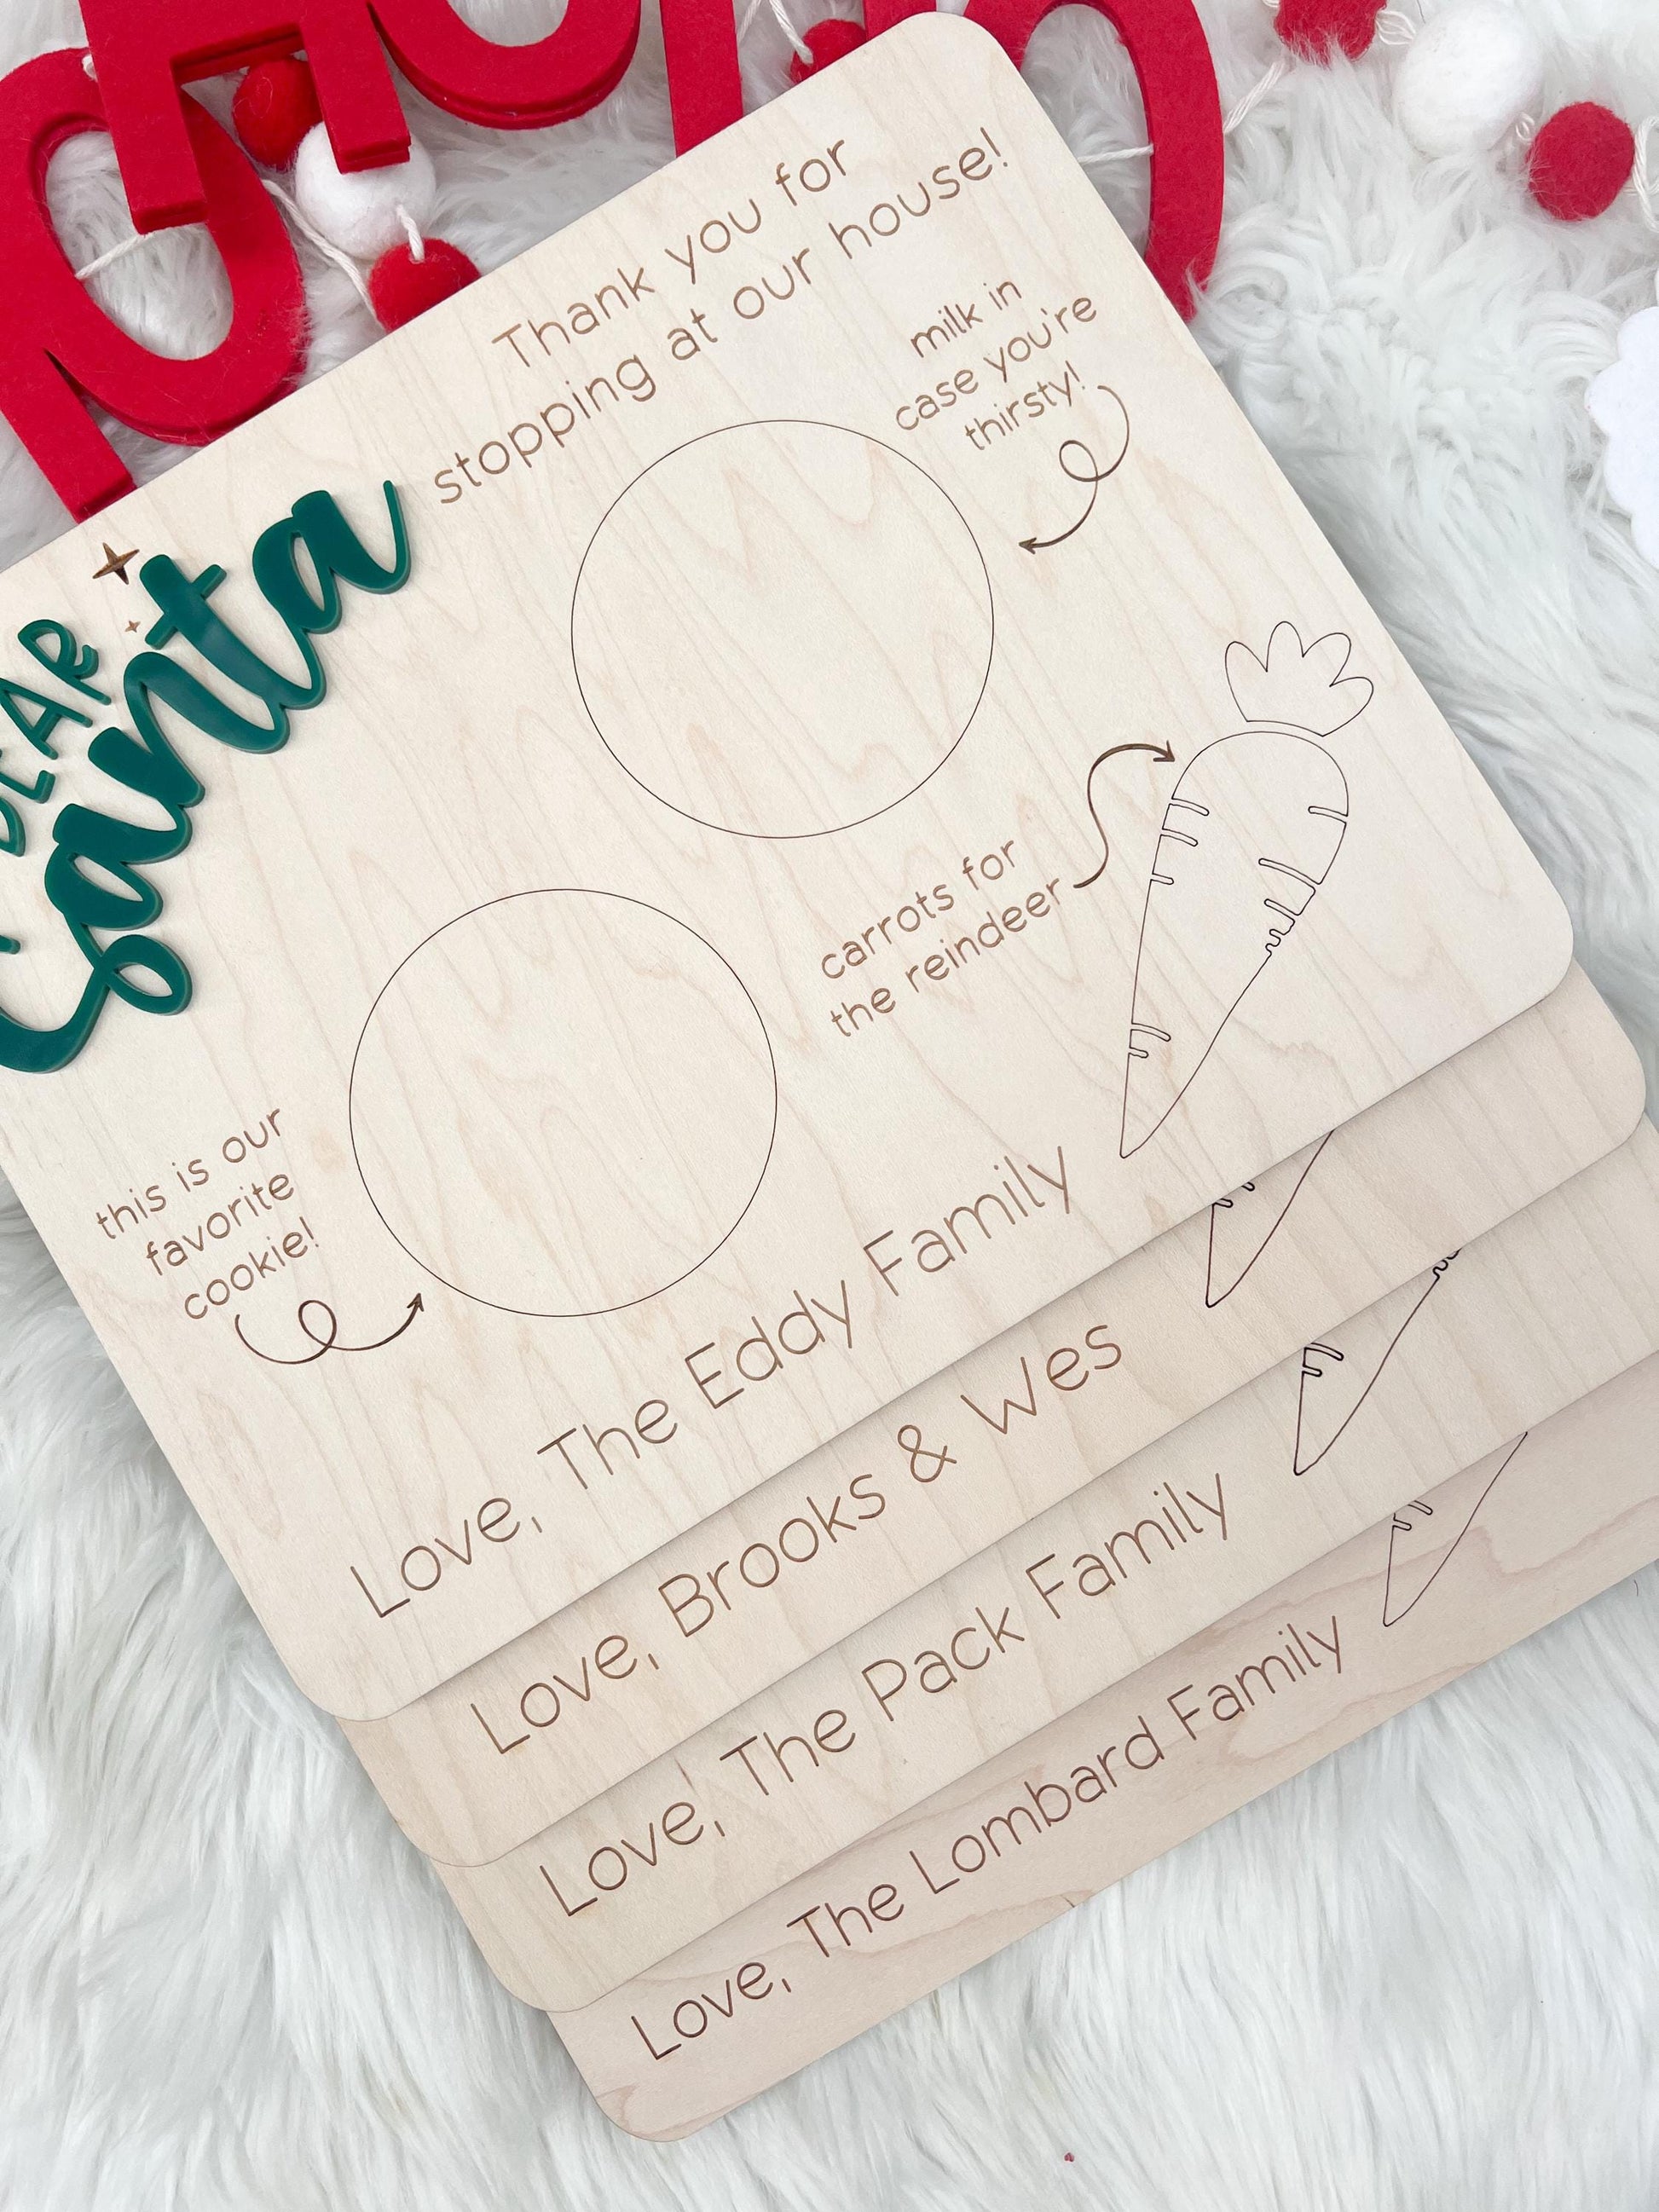 DEAR
Santa
Thank you for
stopping at our house!
milk in
case you're
thirsty!
carrots for
the reindeer
this is our
favorite
cookie!
Love, The Eddy Family
Love, Brooks & Wes
Love, The Pack Family
Love, The Lombard Family